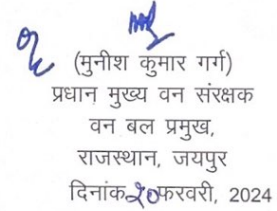 (मुनीश कुमार गर्ग)
प्रधान मुख्य वन संरक्षक
वन बल प्रमुख,
राजस्थान, जयपुर
दिनांक २० फरवरी, 2024